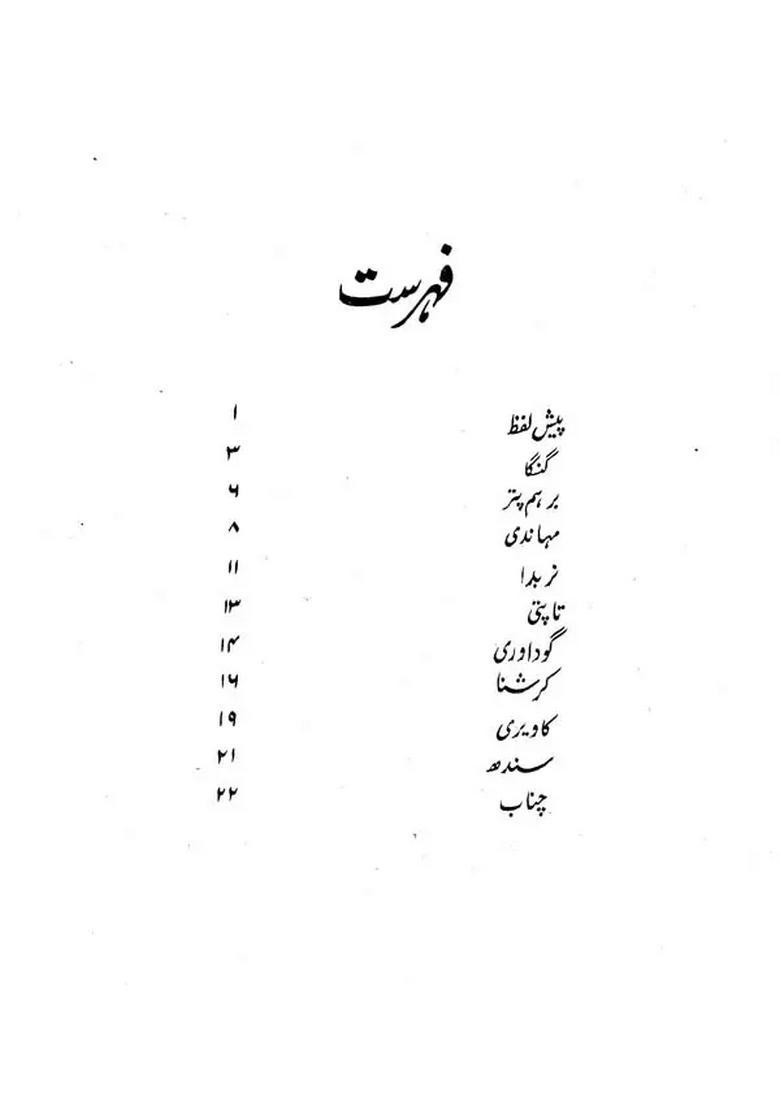 فہرست
پیش لفظ ۱
گنگا ۳
برہم پتر ۶
مہاندی ۸
نربدا ۱۱
تاپتی ۱۳
گوداوری ۱۴
کرشنا ۱۶
کاویری ۱۹
سندھ ۲۱
چناب ۲۲